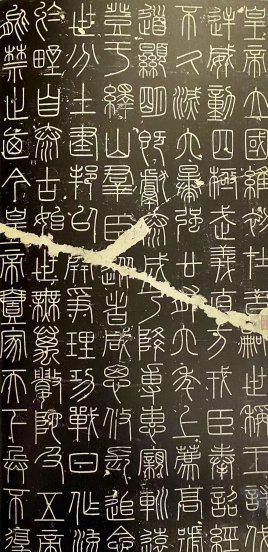 皇帝立國維初在昔嗣世稱王討伐
逆威動四極武義直方戎臣奉詔經
不久滅六暴強廿有六年上薦高號
道顯明既獻泰成乃降專惠親巡遠
登于繹山群臣從者咸思攸長追念
世分土建邦以開爭理功戰日作流
於野自泰古始世無萬數陀及五帝
能禁止廼今皇帝壹家天下兵不復